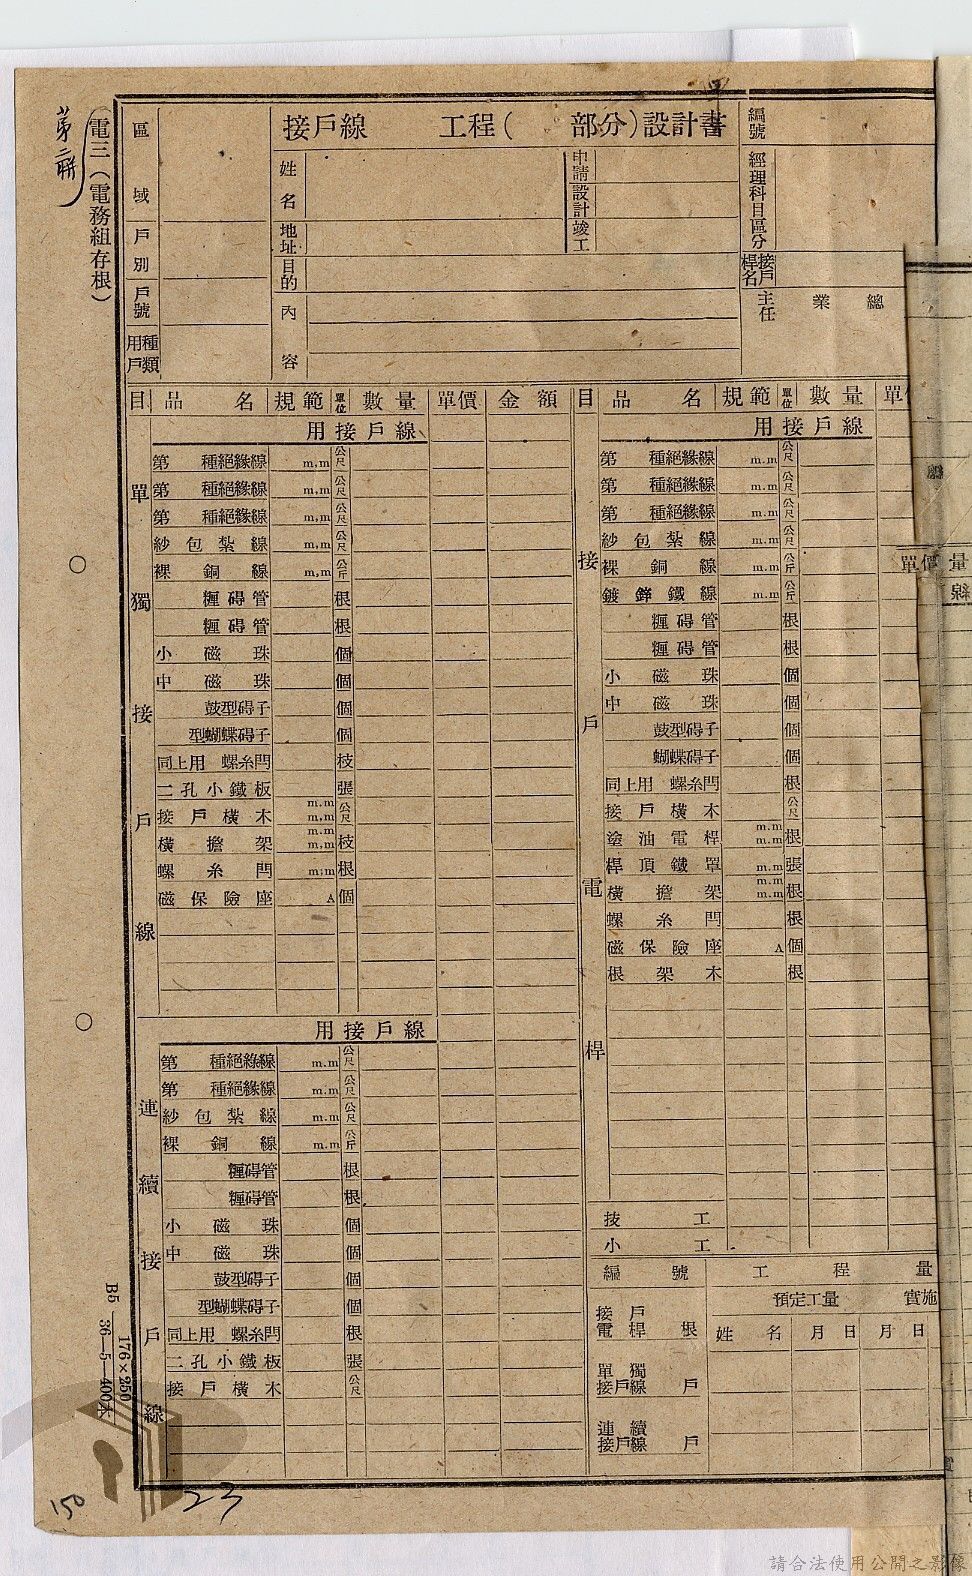 第二聯
電三（電務組存根）
接戶線　工程（　部分）設計書
編號
經理科目區分
接戶桿名
主任　業　總
區域
戶別
戶號
用戶種類
姓名
地址
目的
內容
申請
設計
竣工
目　品名　規範　單位　數量　單價　金額
單獨接戶線
用接戶線
第　種絕緣線　m,m　公尺
第　種絕緣線　m,m　公尺
第　種絕緣線　m,m　公尺
紗包紮線　m,m　公尺
裸銅線　m,m　公斤
碍管　根
碍管　根
小磁珠　個
中磁珠　個
鼓型碍子　個
型蝴蝶碍子　個
同上用　螺糸閂　枝
二孔小鐵板　張
接戶橫木　m.m　m,m　公尺
橫擔架　m.m　m,m　枝
螺糸閂　m.m　根
磁保險座　A　個
連續接戶線
用接戶線
第　種絕緣線　m.m　公尺
第　種絕緣線　m.m　公尺
紗包紮線　m.m　公尺
裸銅線　m.m　公斤
碍管　根
碍管　根
小磁珠　個
中磁珠　個
鼓型碍子　個
型蝴蝶碍子　個
同上用　螺糸閂　根
二孔小鐵板　張
接戶橫木　公尺
目　品名　規範　單位　數量　單價
接戶電桿
用接戶線
第　種絕緣線　m.m　公尺
第　種絕緣線　m.m　公尺
第　種絕緣線　m.m　公尺
紗包紮線　m.m　公尺
裸銅線　m.m　公斤
鍍鋅鐵線　m.m　公斤
碍管　根
碍管　根
小磁珠　個
中磁珠　個
鼓型碍子　個
蝴蝶碍子　個
同上用　螺糸閂　根
接戶橫木　公尺
塗油電桿　m.m　m.m　根
桿頂鐵罩　m.m　張
橫擔架　m.m　m.m　根
螺糸閂　根
磁保險座　A　個
根架木　根
技工
小工
編號　工程量
預定工量　實施
姓名　月日　月日
接戶電桿　根
單獨接戶線　戶
連續接戶線　戶
單價　量
線
B5　176×250
36—5—400本
150
23
請合法使用公開之影像